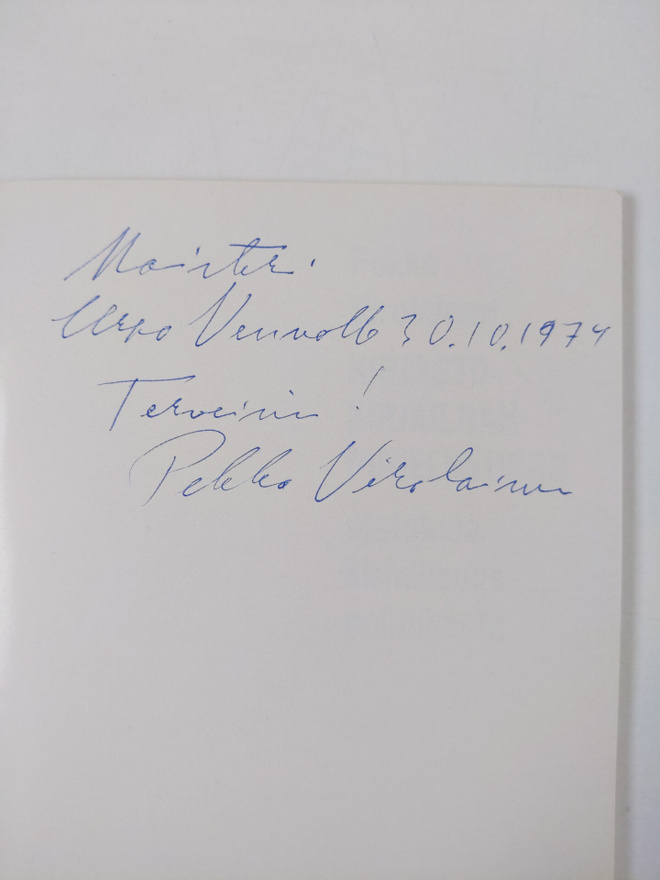 Maisteri
Urpo Vennolle 30.10.1974
Terveisin!
Pekka Virolainen